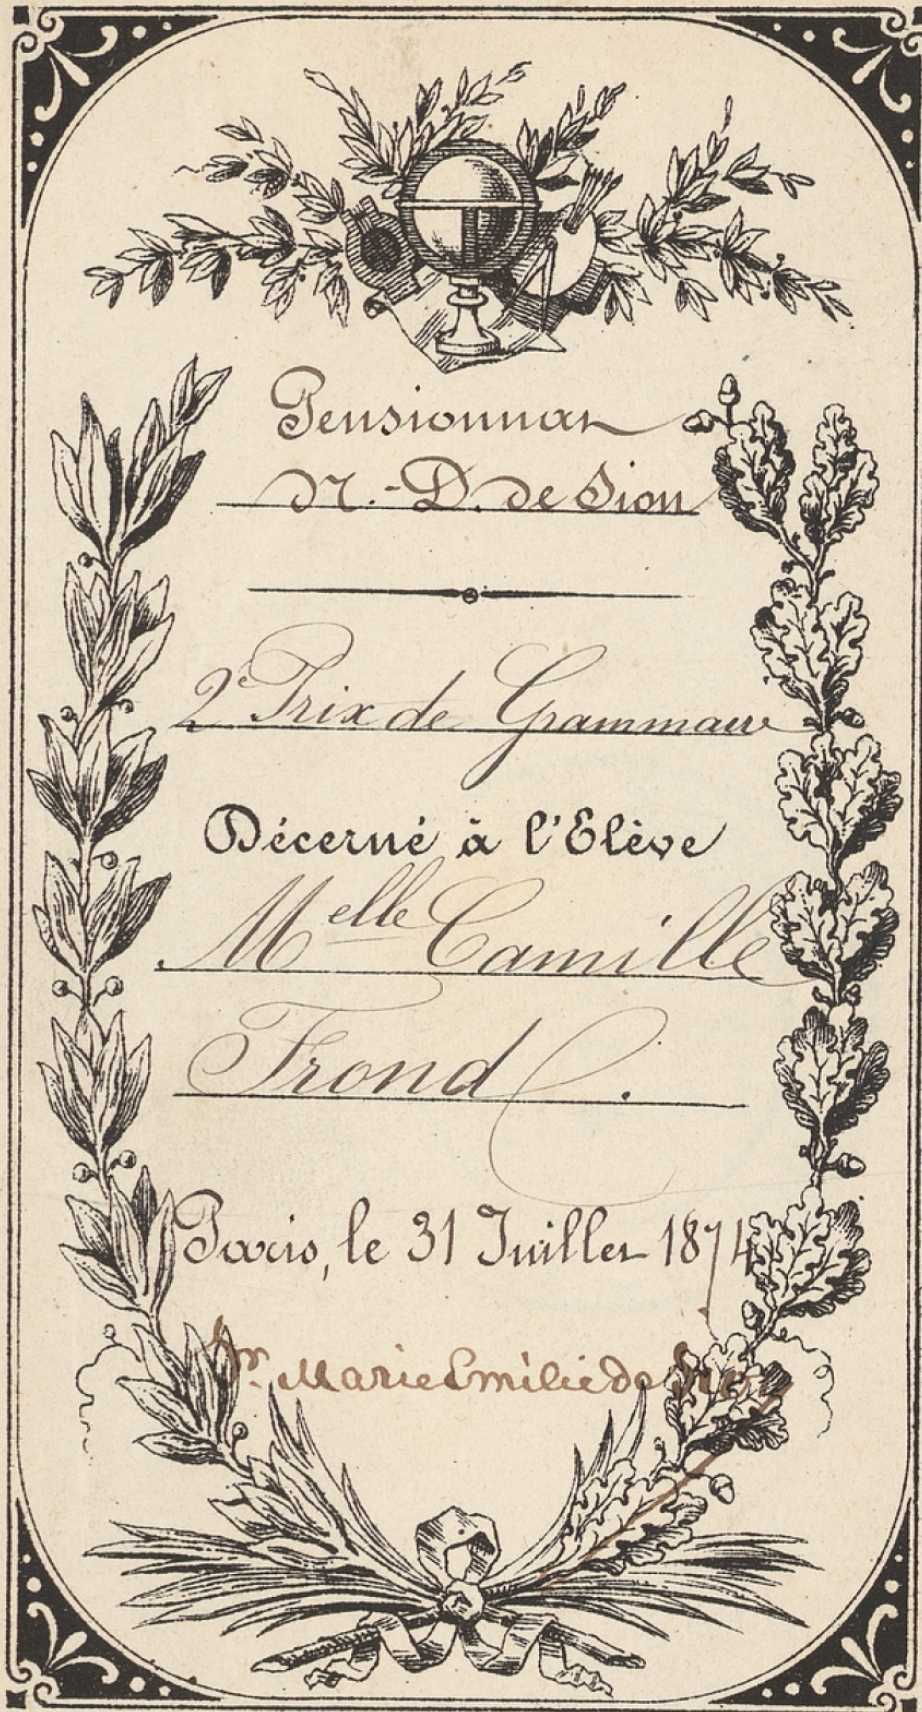 Pensionnat
N.-D. de Sion
2e Prix de Grammaire
Décerné à l'Elève
Melle Camille
Frond.
Paris, le 31 Juillet 1874
Sr. Marie Emilie de Sion